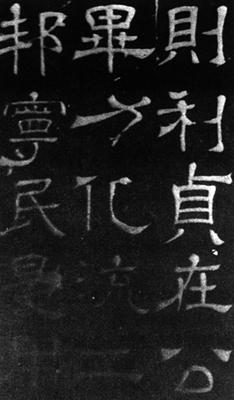 則利貞在公
畢力化流
邦寧民